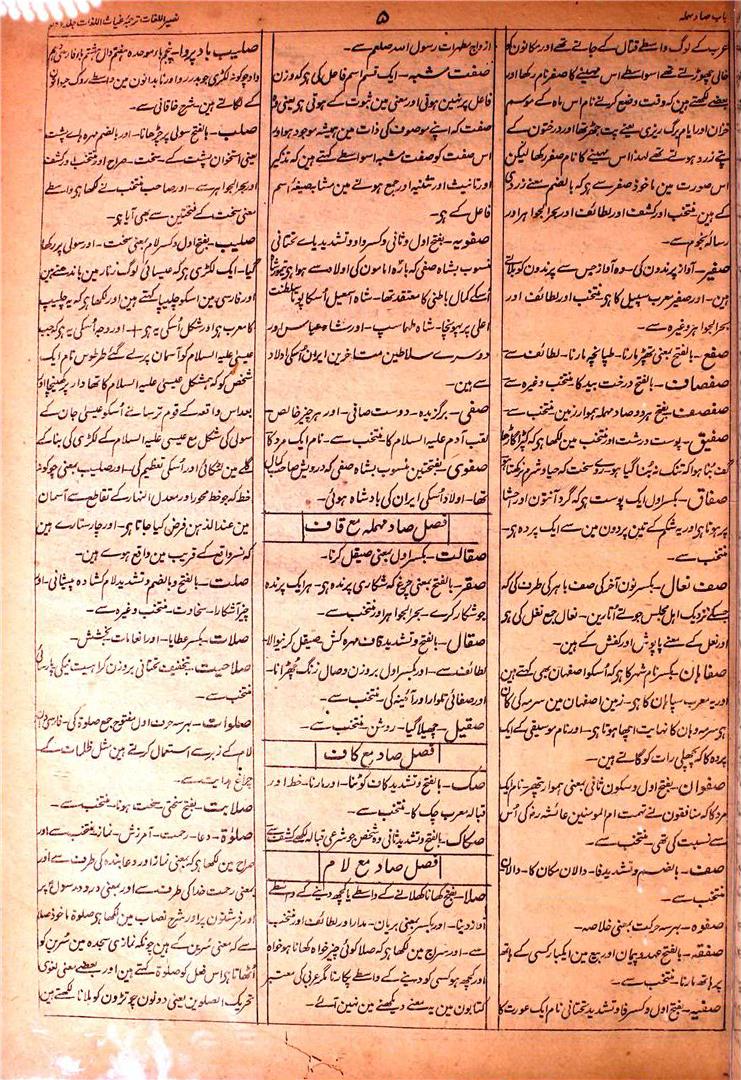 باب صاد مہملہ
۵
نصیر اللغات ترجمۂ غیاث اللغات جلد
عرب کے لوگ واسطے قتال کے جاتے تھے اور مکانوں کو
خالی چھوڑتے تھے اسواسطے اس مہینے کا صفر نام رکھا اور
بعضے لکھتے ہین کہ وقت وضع کرنے نام اس ماہ کے موسم
خزان اور ایام برگ ریزی یعنے پت جھڑ تھا اور درختون کے
پتے زرد ہوتے تھے لہذا اس مہینے کا نام صفر رکھا لیکن
اس صورت مین ماخوذ صفر سے ہو کہ بالضم بمعنے زردی
کے ہین منتخب اور کشف اور لطائف اور بحر الجواہر اور
رسالہ نجوم سے۔
صفیر۔ آواز پرندون کی۔ وہ آواز جس سے پرندون کو بلاتے
ہین۔ اور صفیر معرب سپیل کا ہو منتخب اور لطائف اور
بحر الجواہر وغیرہ سے۔
صفع۔ بالفتح بمعنی تھپڑ مارنا۔ طپانچہ مارنا۔ لطائف سے
صفصاف۔ بالفتح درخت بید کا منتخب وغیرہ سے
صفصف۔ بفتح ہر دو صاد مہملہ ہموار زمین منتخب سے۔
صفیق۔ پوست درشت اور منتخب مین لکھا ہو کہ کپڑا گاڑھا
صفاق۔ بکسر اول ایک پوست ہو کہ گرد آنتون اور احشا
پر ہوتا ہو اور یہ شکم کے تین پردون مین سے ایک پردہ ہو۔
منتخب سے۔
صف نعال۔ بکسر نون آخر کی صف باہر کی طرف کی کہ
جسکے نزدیک اہل مجلس جوتے اُتارین۔ نعال جمع نعل کی ہو
اور نعل کے معنے پاپوش اور کفش کے ہین۔
صفاہان۔ بکسر نام شہر کا ہو کہ اُسکو اصفہان بھی کہتے ہین
اور یہ معرب سپاہان کا ہو۔ زمین اصفہان مین سرمہ کی کان
ہو سرمہ وہان کا نہایت اچھا ہوتا ہو۔ اور نام موسیقی کے ایک
پردہ کا کہ پچھلی رات کو گاتے ہین۔
صفوان۔ بفتح اول و سکون ثانی بمعنی ہموار پتھر۔ نام ایک
مرد کا کہ منافقون نے تہمت ام المومنین عائشہ رضؓ کی اُس
سے نسبت کی تھی۔ منتخب سے۔
صفہ۔ بالضم و تشدید فا۔ دالان مکان کا۔ دالان
منتخب سے۔
صفوہ۔ بہر سہ حرکت بمعنی خلاصہ۔
صفقہ۔ بالفتح عہد و پیمان اور بیع مین ایکبار کسی کے ہاتھ
پر ہاتھ مارنا۔ منتخب سے۔
صفیہ۔ بفتح اول و کسر فا و تشدید تحتانی نام ایک عورت کا
ازواج مطہرات رسول اللہ صلعم سے۔
صفت مشبہ۔ ایک قسم اسم فاعل کی ہو کہ وزن
فاعل پر نہین ہوتی اور معنی مین ثبوت کے ہوتی ہو یعنی وہ
صفت کہ اپنے موصوف کی ذات مین ہمیشہ موجود ہو اور
اس صفت کو صفت مشبہ اسواسطے کہتے ہین کہ تذکیر
اور تانیث اور تثنیہ اور جمع ہونے مین مشابہ صیغہ اسم
فاعل کے ہو۔
صفویہ۔ بفتح اول و ثانی و کسر واو و تشدید یاے تحتانی
منسوب بشاہ صفی کہ
اُسکے کمال باطنی کا معتقد تھا۔ شاہ اسمعیل اُسکا پوتا سلطنت
اعلی پر پہونچا۔ شاہ طہماسپ۔ اور شاہ عباس اور
دوسرے سلاطین متاخرین ایران اُسکی اولاد
سے ہین۔
صفی۔ برگزیدہ۔ دوست صافی۔ اور ہر چیز خالص
لقب آدم علیہ السلام کا منتخب سے۔ نام ایک مرد کا
صفوی۔ بفتحتین منسوب بشاہ صفی کہ درویش صاحب کمال
تھا۔ اولاد اُسکی ایران کی بادشاہ ہوئی۔
فصل صاد مہملہ مع قاف
صقالت۔ بکسر اول بمعنی صیقل کرنا۔
صقر۔ بالفتح بمعنی چرغ کہ شکاری پرندہ ہو۔ ہر ایک پرندہ
جو شکار کرے۔ بحر الجواہر اور منتخب سے۔
صقال۔ بالفتح و تشدید قاف مہرہ کش صیقل کرنیوالا
لطائف سے۔ اور بکسر اول بروزن وصال زنگ چھڑانا۔
اور صفائی تلوار اور آئینہ کی منتخب سے۔
صقیل۔ چھیلا گیا۔ روشن منتخب سے۔
فصل صاد مع کاف
صک۔ بالفتح و تشدید کاف کوٹنا۔ اور مارنا۔ خط اور
قبالہ معرب چک کا۔ منتخب سے۔
صکاک۔ بالفتح و تشدید ثانی وہ شخص جو شرعی قبالہ لکھے کشف سے
فصل صاد مع لام
صلا۔ بفتح کھانا کھلانے کے واسطے یا کچھ دینے کے واسطے
آواز دینا۔ اور بکسر بمعنی بریان۔ مدار اور لطائف اور منتخب
سے۔ اور سراج مین لکھا ہو کہ صلا کوئی چیز خواہ کھانا ہو خواہ
اور کچھ ہو کسی کو دینے کے واسطے پکارنا مگر عربی کی معتبر
کتابون مین یہ معنے دیکھنے مین نہین آئے۔
صلیب باد پروا۔
کے لگاتے ہین۔ شرح خاقانی سے۔
صلب۔ بالفتح سولی پر چڑھانا۔ اور بالضم مہرہ ہاے پشت
یعنی استخوان پشت کے۔ سخت۔ صراح اور منتخب اور کشف
اور بحر الجواہر سے۔ اور صاحب منتخب نے لکھا ہو واسطے
معنی سخت کے فتحتین سے بھی آیا ہو۔
صلیب۔ بفتح اول و کسر لام بمعنی سخت۔ اور سولی پر رکھا
گیا۔ ایک لکڑی ہو کہ عیسائی لوگ زنار مین باندھتے ہین
اور فارسی مین اسکو چلیپا کہتے ہین اور لکھا ہو کہ یہ چلیپ
کا معرب ہو اور شکل اُسکی یہ ہو + اور وجہ اُسکی یہ ہو کہ جب
عیسیٰ علیہ السلام کو آسمان پر لے گئے طرطوس نام ایک
شخص کو کہ ہمشکل عیسیٰ علیہ السلام کا تھا دار پر کھینچا اور
بعد اس واقعہ کے قوم ترسا نے اُسکو عیسیٰ جان کے
سولی کی شکل مع عیسیٰ علیہ السلام کے لکڑی کی بنا کے
گلے مین لٹکائی اور اُسکی تعظیم کی۔ اور صلیب بمعنی چوکونہ
خط کہ جو خط محور اور معدل النہار کے تقاطع سے آسمان
مین عند الذہن فرض کیا جاتا ہو۔ اور چار ستارے ہین
کہ نسر واقع کے قریب مین واقع ہوے ہین۔
صلت۔ بالفتح و بالضم و تشدید لام کشادہ پیشانی۔ اور
چیز آشکارا۔ سخاوت۔ منتخب وغیرہ سے۔
صلات۔ بکسر عطایا۔ اور انعامات بخشش۔
صلاحیت۔ بتخفیف تحتانی بروزن کراہیت نیکی پارسائی
منتخب سے۔
صلوات۔ بہر سہ حرف اول مفتوح جمع صلوۃ کی۔ فارسی مین
لام کے زبر سے استعمال کرتے ہین مثل ظلمات کے۔
چراغ ہدایت سے۔
صلابت۔ بفتح سختی سخت ہونا۔ منتخب سے۔
صلوٰۃ۔ دعا۔ رحمت۔ آمرزش۔ نماز منتخب سے اور
صراح مین لکھا ہو کہ بمعنی نماز اور دعا بندہ کی طرف سے اور
بمعنی رحمت خدا کی طرف سے اور بمعنی درود رسولؐ پر
اور فرشتون پر اور شرح نصاب مین لکھا ہو صلوۃ ماخوذ صلا
سے کہ بمعنی سُرین کے ہین چونکہ نمازی سجدہ مین سُرین کو
اُٹھاتا ہو اس فعل کو صلوۃ کہتے ہین اور بعضے بمعنی لغوی
تحریک الصلوین یعنی دونون چوتڑون کو ہلانا لکھتے ہین